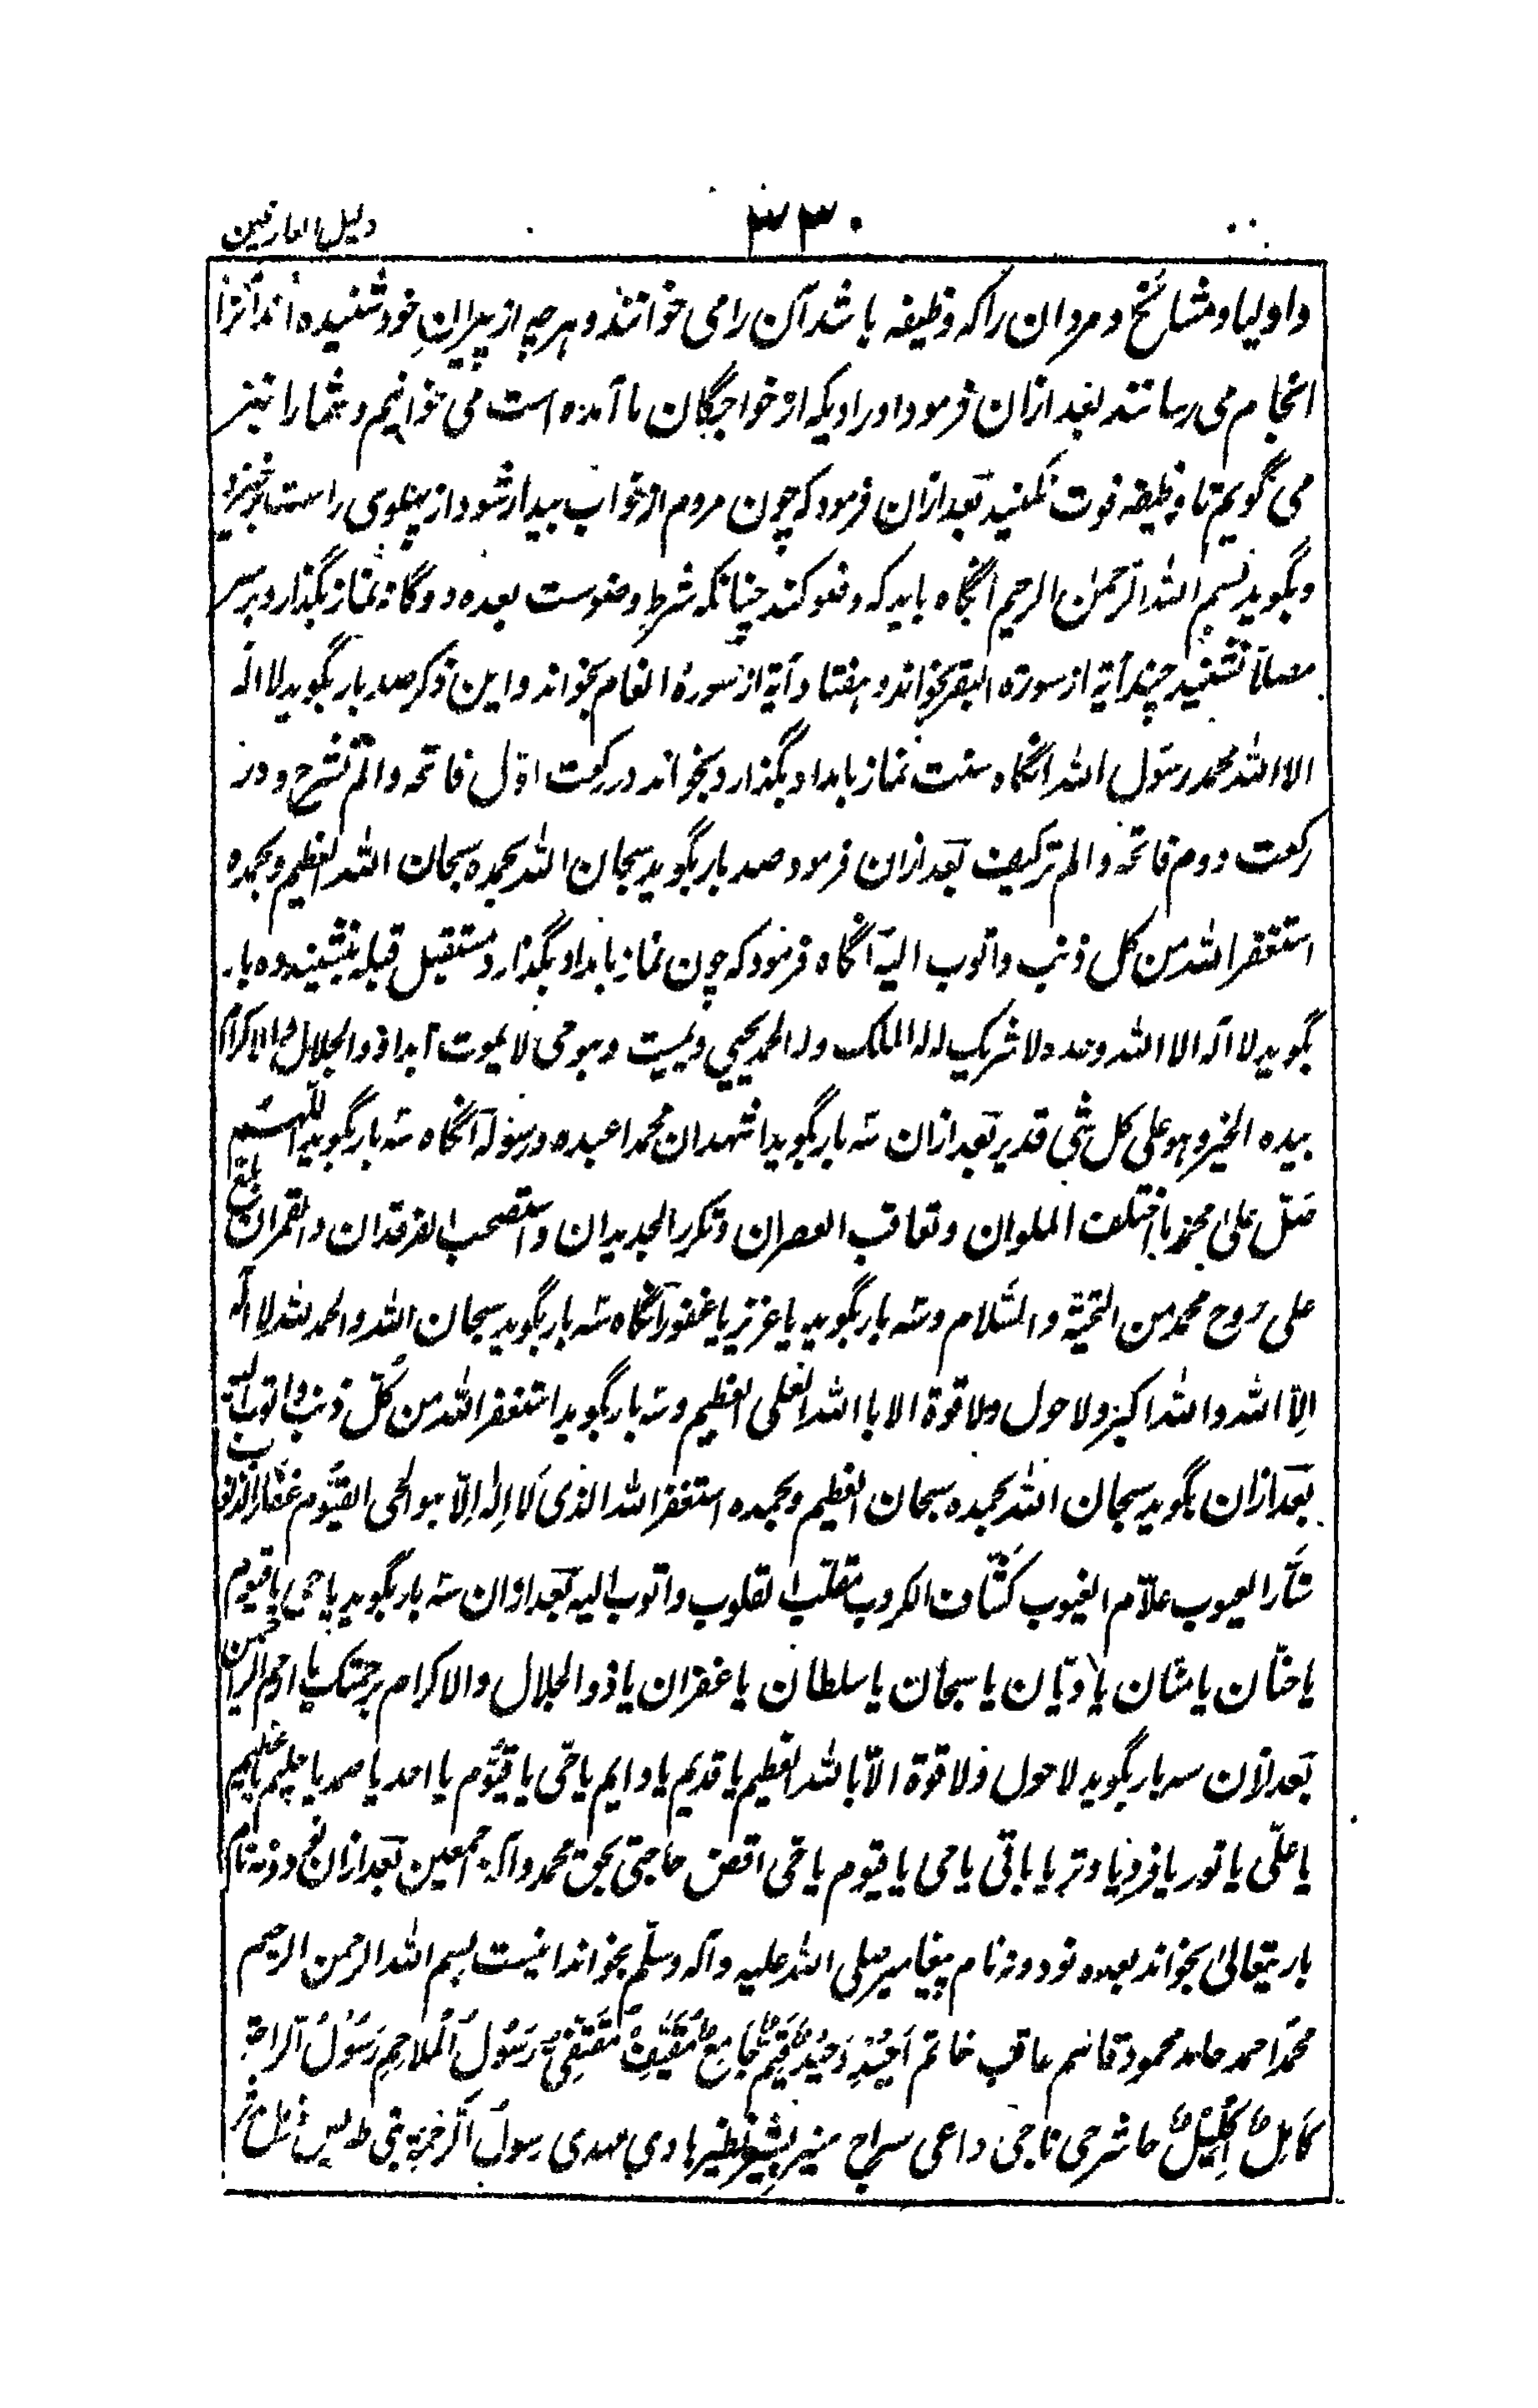 دلیل العارفین
۳۳۰
و اولیا و مشائخ و مردان را که وظیفه باشد آن را می خوانند و هر چه از پیرانِ خود شنیده اند آنرا
انجام می رسانند بعد ازان فرمود اورادیکه از خواجگان ما آمده است می خوانیم و شما را نیز
می گویم تا وظیفه فوت نکنید بعد ازان فرمود که چون مردم از خواب بیدار شود از پهلوی راست برخیزد
و بگوید بسم الله الرحمن الرحیم انگاه باید که وضو کند چنانکه شرطِ وضوست بعده دوگانه نماز بگذارد و بر سر
مصلا نشیند چند آیة از سورة البقر بخواند و هفتاد آیة از سورۂ انعام بخواند و این ذکر صد بار بگوید لا اله
الا الله محمد رسول الله انگاه سنت نماز بامداد بگذارد و بخواند در رکعت اول فاتحه و الم نشرح و در
رکعت دوم فاتحه و الم ترکیف بعد ازان فرمود صد بار بگوید سبحان الله بحمده سبحان الله العظیم و بحمده
استغفر الله من کل ذنب و اتوب الیه آنگاه فرمود که چون نماز بامداد بگذارد مستقبل قبله بنشیند و ده بار
بگوید لا اله الا الله وحده لا شریک له له الملک و له الحمد یحیی و یمیت و هو حی لا یموت ابدا ذو الجلال و الاکرام
بیده الخیر و هو علی کل شی قدیر بعد ازان سه بار بگوید اشهد ان محمدا عبده و رسوله آنگاه سه بار بگوید اللهم
صل علی محمد ما اختلف الملوان و تعاقب العصران و تکرر الجدیدان و استصحب الفرقدان و القمران بلغ
علی روح محمد من التحیة و السلام و سه بار بگوید یا عزیز یا غفور آنگاه سه بار بگوید سبحان الله و الحمد لله لا اله
اِلّا الله و الله اکبر و لا حول و لا قوة الا با الله العلی العظیم و سه بار بگوید استغفر الله من کُلّ ذنب و اتوب الیه
بعد ازان بگوید سبحان الله بحمده سبحان العظیم و بحمده استغفر الله الذی لَا اِلٰه اِلّا هو الحی القیّوم غفّار الذنوب
ستّار العیوب علّام الغیوب کشّاف الکروب مقلّب القلوب و اتوب الیه بعد ازان سه بار بگوید یا حی یا قیوم
یا حنّان یا منّان یا دیّان یا سبحان یا سلطان یا غفران یا ذو الجلال و الاکرام برحمتک یا ارحم الراحمین
بعد ازان سه بار بگوید لا حول و لا قوة الّا بالله العظیم یا قدیم یا دایم یا حی یا قیّوم یا احد یا صمد یا حلیم یا علیم
یا علّی یا نور یا فرد یا وتر یا باقی یا حی یا قیوم یا حی اقض حاجتی بحق محمد و آله اجمعین بعد ازان نود و نه نام
باریتعالیٰ بخواند بعده نود و نه نام پیغامبر صلی الله علیه و آله و سلّم بخواند اینست بسم الله الرحمن الرحیم
محمّد احمد حامد محمود قاسم عاقب خاتم اَحِیْدٌ وَحِیْدٌ قَیِّمٌ جَامِعٌ مُقْتَفٍ مُقَفِّی رَسُوْلُ الْمَلَاحِمِ رَسُوْلُ الراحة
کَامِلٌ اِکْلِیْلٌ حاشر حی ناجی داعی سراج منیر بشیر نذیر هادی مهدی رسول الرحمة نبی طه یس